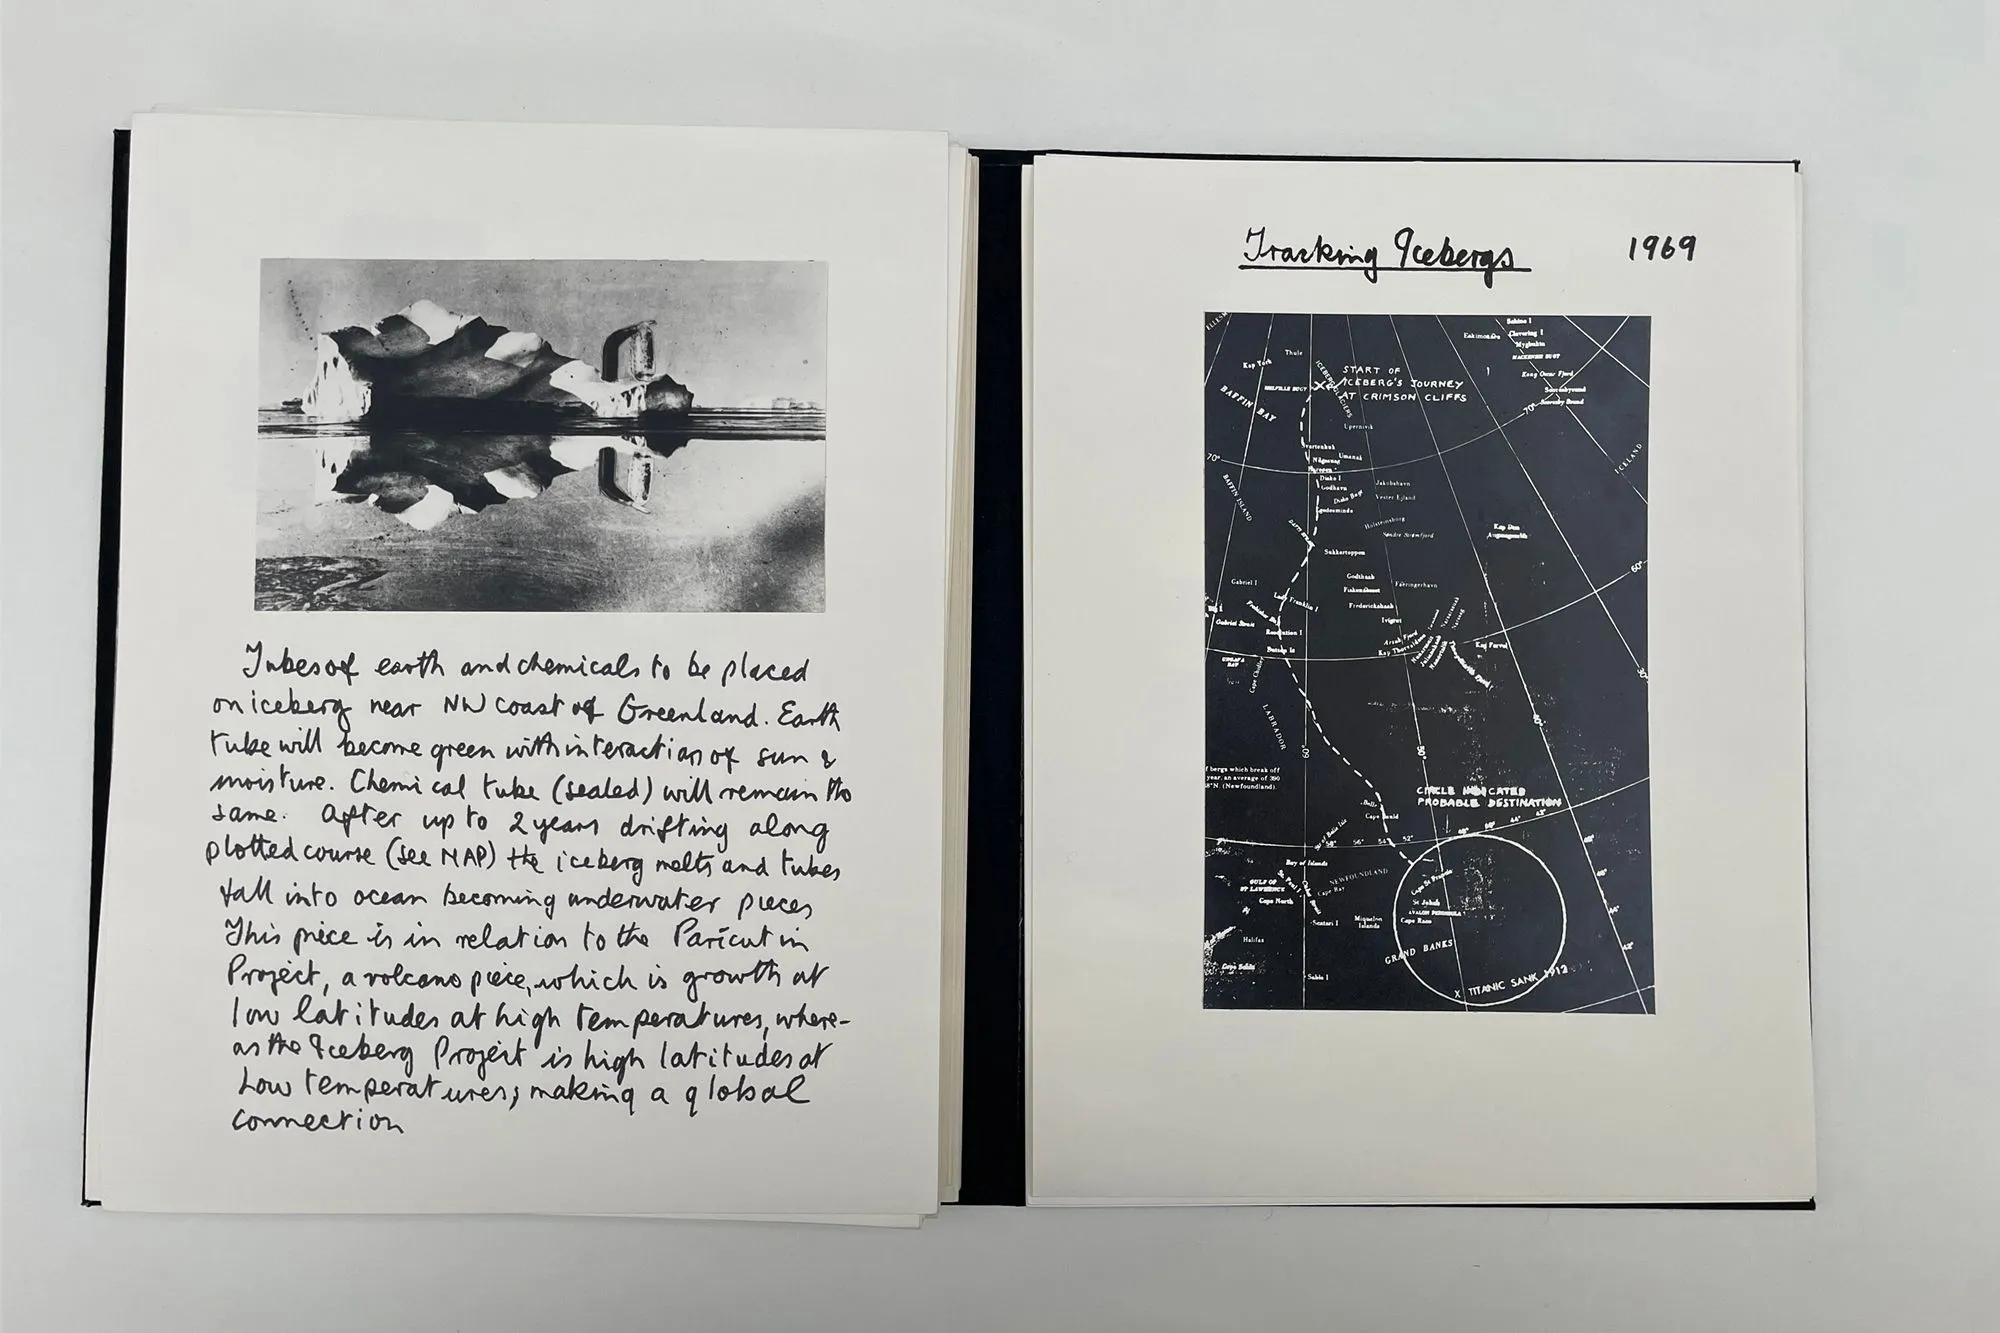 Tubes of earth and chemicals to be placed
on iceberg near NW coast of Greenland. Earth
tube will become green with interaction of sun &
moisture. Chemical tube (sealed) will remain the
same. After up to 2 years drifting along
plotted course (see MAP) the iceberg melts and tubes
fall into ocean becoming underwater pieces
This piece is in relation to the Parícutin
Project, a volcano piece, which is growth at
low latitudes at high temperatures, where-
as the Iceberg Project is high latitudes at
low temperatures; making a global
connection
Tracking Icebergs
1969
Thule
Kap York
MELVILLE BUGT
BAFFIN BAY
START OF
ICEBERG'S JOURNEY
AT CRIMSON CLIFFS
Clavering I
Myghukta
MACKENZIE BUGT
Kong Oscar Fjord
Scoresbysund
70°
ICELAND
Upernivik
Umanak
70°
Disko I
Godhavn
Disko Bugt
Jakobshavn
Vester Ejland
BAFFIN ISLAND
Holsteinsborg
Søndre Strømfjord
Sukkertoppen
60°
Gabriel I
Godthaab
Færingerhavn
Fiskenæsset
Frederickshaab
Lady Franklin I
Gabriel Strait
Resolution I
Ivigtut
Arsuk Fjord
Kap Thorvaldsen
Kap Farvel
Button Is
UNGAVA
BAY
LABRADOR
60°
50°
f bergs which break off
year, an average of 390
8°N. (Newfoundland).
CIRCLE INDICATED
PROBABLE DESTINATION
Cape Bauld
58°
56°
54°
52°
48°
44°
Bay of Islands
NEWFOUNDLAND
GULF OF
ST LAWRENCE
St Paul I
Cape Ray
Cape North
St Johns
AVALON PENINSULA
Cape Race
Miquelon
Islands
Scatari I
Halifax
GRAND BANKS
Cape Sable
Sable I
X TITANIC SANK 1912